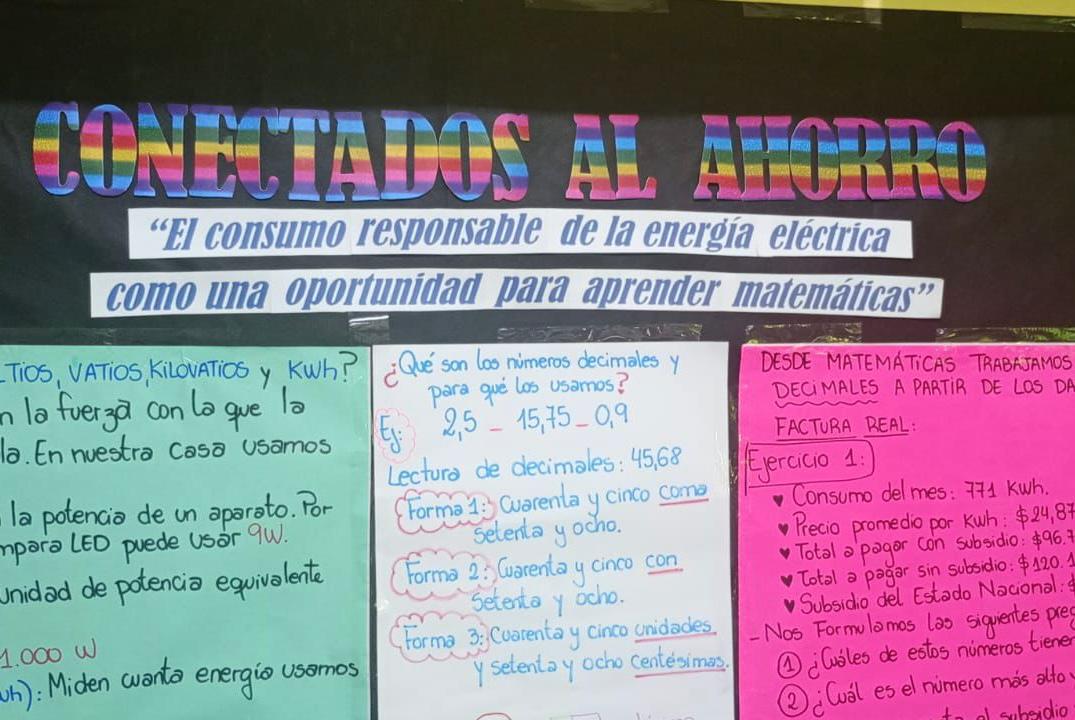 CONECTADOS AL AHORRO
“El consumo responsable de la energía eléctrica
como una oportunidad para aprender matemáticas”
VATIOS, KILOVATIOS y KWh?
la fuerza con la que la
En nuestra casa usamos
la potencia de un aparato. Por
LED puede usar 9W.
unidad de potencia equivalente
1.000 W
Miden cuanta energía usamos
¿Qué son los números decimales y
para qué los usamos?
Ej: 2,5 - 15,75 - 0,9
Lectura de decimales: 45,68
Forma 1: Cuarenta y cinco coma
setenta y ocho.
Forma 2: Cuarenta y cinco con
setenta y ocho.
Forma 3: Cuarenta y cinco unidades
y setenta y ocho centésimas.
DESDE MATEMÁTICAS TRABAJAMOS
DECIMALES A PARTIR DE LOS
FACTURA REAL:
Ejercicio 1:
♥ Consumo del mes: 771 Kwh.
♥ Precio promedio por Kwh: $24,87
♥ Total a pagar con subsidio: $96.7
♥ Total a pagar sin subsidio: $120.1
♥ Subsidio del Estado Nacional: $
- Nos Formulamos las siguientes
① ¿Cuáles de estos números tienen
② ¿Cuál es el número más alto
el subsidio